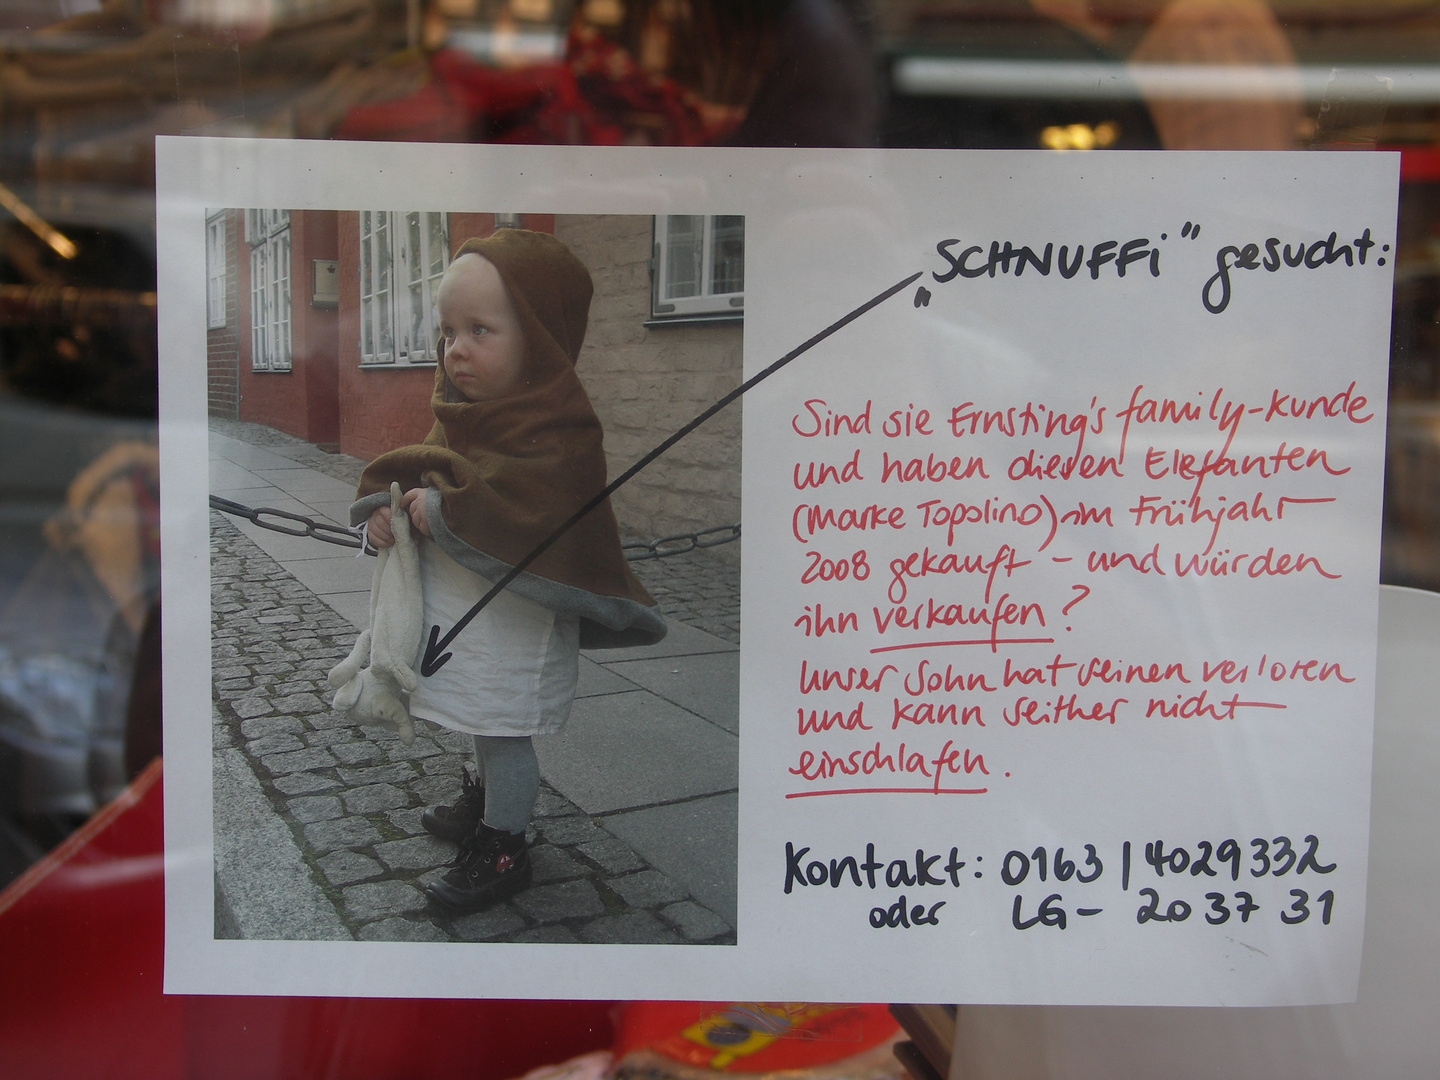 „SCHNUFFi" gesucht:
Sind sie Ernsting's family-Kunde
und haben diesen Elefanten
(Marke Topolino) im Frühjahr
2008 gekauft - und würden
ihn verkaufen?
Unser Sohn hat seinen verloren
und kann seither nicht
einschlafen.
Kontakt: 0163 | 4029332
oder LG- 20 37 31